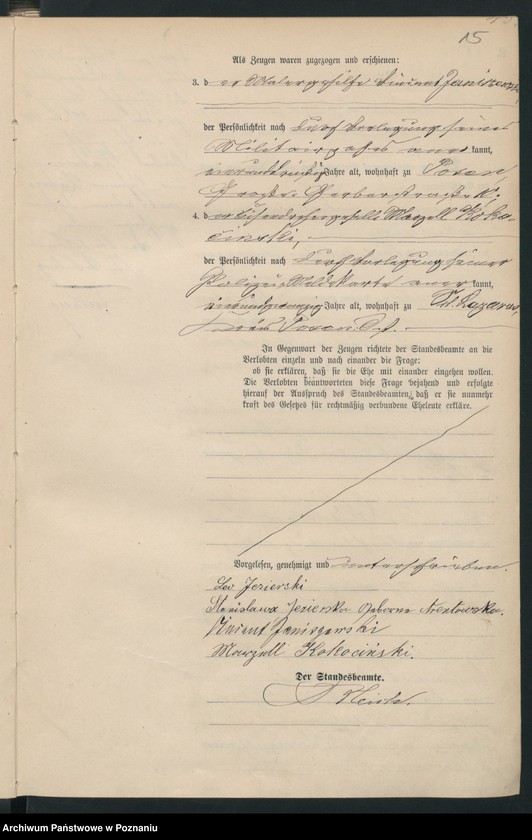 15
Als Zeugen waren zugezogen und erschienen:
3. der Malergehilfe Vincent Janiszewski,
der Persönlichkeit nach durch Vorlegung seines
Militairpasses aner kannt,
Jahre alt, wohnhaft zu Posen,
Große Gerberstraße
4. der Marzell Koko-
cinski,
der Persönlichkeit nach durch Vorlegung seiner
Polizei-Meldekarte aner kannt,
Jahre alt, wohnhaft zu St. Lazarus,
Kreis Posen Ost.
In Gegenwart der Zeugen richtete der Standesbeamte an die
Verlobten einzeln und nach einander die Frage:
ob sie erklären, daß sie die Ehe mit einander eingehen wollen.
Die Verlobten beantworteten diese Frage bejahend und erfolgte
hierauf der Ausspruch des Standesbeamten, daß er sie nunmehr
kraft des Gesetzes für rechtmäßig verbundene Eheleute erkläre.
Vorgelesen, genehmigt und unterschrieben.
Leo Jezierski
Stanisława Jezierska geborne
Vincent Janiszewski
Marzell Kokociński.
Der Standesbeamte.
Archiwum Państwowe w Poznaniu